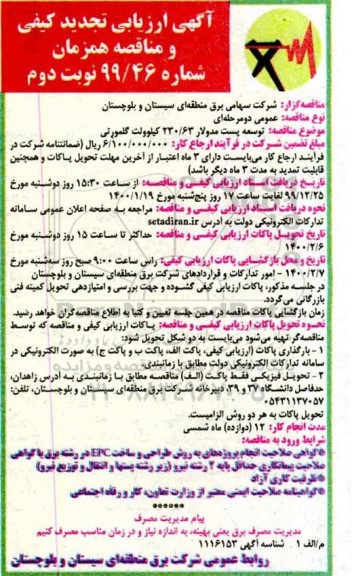 آگهی ارزیابی تجدید کیفی
و مناقصه همزمان
شماره ۹۹/۴۶ نوبت دوم
مناقصه‌گزار: شرکت سهامی برق منطقه‌ای سیستان و بلوچستان
نوع مناقصه: عمومی دومرحله‌ای
موضوع مناقصه: توسعه پست مدولار ۲۳۰/۶۳ کیلوولت گلمورتی
مبلغ تضمین شرکت در فرآیند ارجاع کار: ۶/۱۰۰/۰۰۰/۰۰۰ ریال (ضمانتنامه شرکت در
فرآیند ارجاع کار می‌بایست دارای ۳ ماه اعتبار از آخرین مهلت تحویل پاکات و همچنین
قابلیت تمدید به مدت ۳ ماه دیگر باشد)
تاریخ دریافت اسناد ارزیابی کیفی و مناقصه: از ساعت ۱۵:۳۰ روز دوشنبه مورخ
۹۹/۱۲/۲۵ لغایت ساعت ۱۷ روز پنج‌شنبه مورخ ۱۴۰۰/۱/۱۹
نحوه دریافت اسناد ارزیابی کیفی و مناقصه: مراجعه به صفحه اعلان عمومی سامانه
تدارکات الکترونیکی دولت به آدرس setadiran.ir
تاریخ تحویل پاکات ارزیابی کیفی و مناقصه: حداکثر تا ساعت ۱۵ روز دوشنبه مورخ
۱۴۰۰/۲/۶
تاریخ و محل بازگشایی پاکات ارزیابی کیفی: راس ساعت ۹:۰۰ صبح روز سه‌شنبه مورخ
۱۴۰۰/۲/۷ - امور تدارکات و قراردادهای شرکت برق منطقه‌ای سیستان و بلوچستان
در جلسه مذکور، پاکات ارزیابی کیفی گشوده و جهت بررسی و امتیازدهی تحویل کمیته فنی
بازرگانی می‌گردد.
زمان بازگشایی پاکات مناقصه در همین جلسه تعیین و کتبا به اطلاع مناقصه‌گران خواهد رسید.
نحوه تحویل پاکات ارزیابی کیفی و مناقصه: پاکات ارزیابی کیفی و مناقصه که توسط
مناقصه‌گر تهیه می‌شود می‌بایست به دو شکل تحویل شود:
۱- بارگذاری پاکات (ارزیابی کیفی، پاکت الف، پاکت ب و پاکت ج) به صورت الکترونیکی در
سامانه تدارکات الکترونیکی دولت مطابق با زمانبندی.
۲- تحویل فیزیکی فقط پاکت (الف) مناقصه مطابق با زمانبندی به آدرس زاهدان،
حدفاصل دانشگاه ۳۷ و ۳۹، دبیرخانه شرکت برق منطقه‌ای سیستان و بلوچستان، تلفن:
۰۵۴۳۱۱۳۷۰۵۷
تحویل پاکات به هر دو روش الزامیست.
مدت انجام کار: ۱۲ (دوازده) ماه شمسی
شرایط ورود به مناقصه:
*گواهی صلاحیت انجام پروژه‌های به روش طراحی و ساخت EPC در رشته برق یا گواهی
صلاحیت پیمانکاری حداقل پایه ۲ رشته نیرو (زیر رشته پستها و انتقال و توزیع نیرو)
*ظرفیت کاری آزاد
*گواهینامه صلاحیت ایمنی معتبر از وزارت تعاون، کار و رفاه اجتماعی
******
پیام مدیریت مصرف
مدیریت مصرف برق یعنی بهینه، به اندازه نیاز و در زمان مناسب مصرف کنیم
م/الف ۱ شناسه آگهی ۱۱۱۶۱۵۳
روابط عمومی شرکت برق منطقه‌ای سیستان و بلوچستان